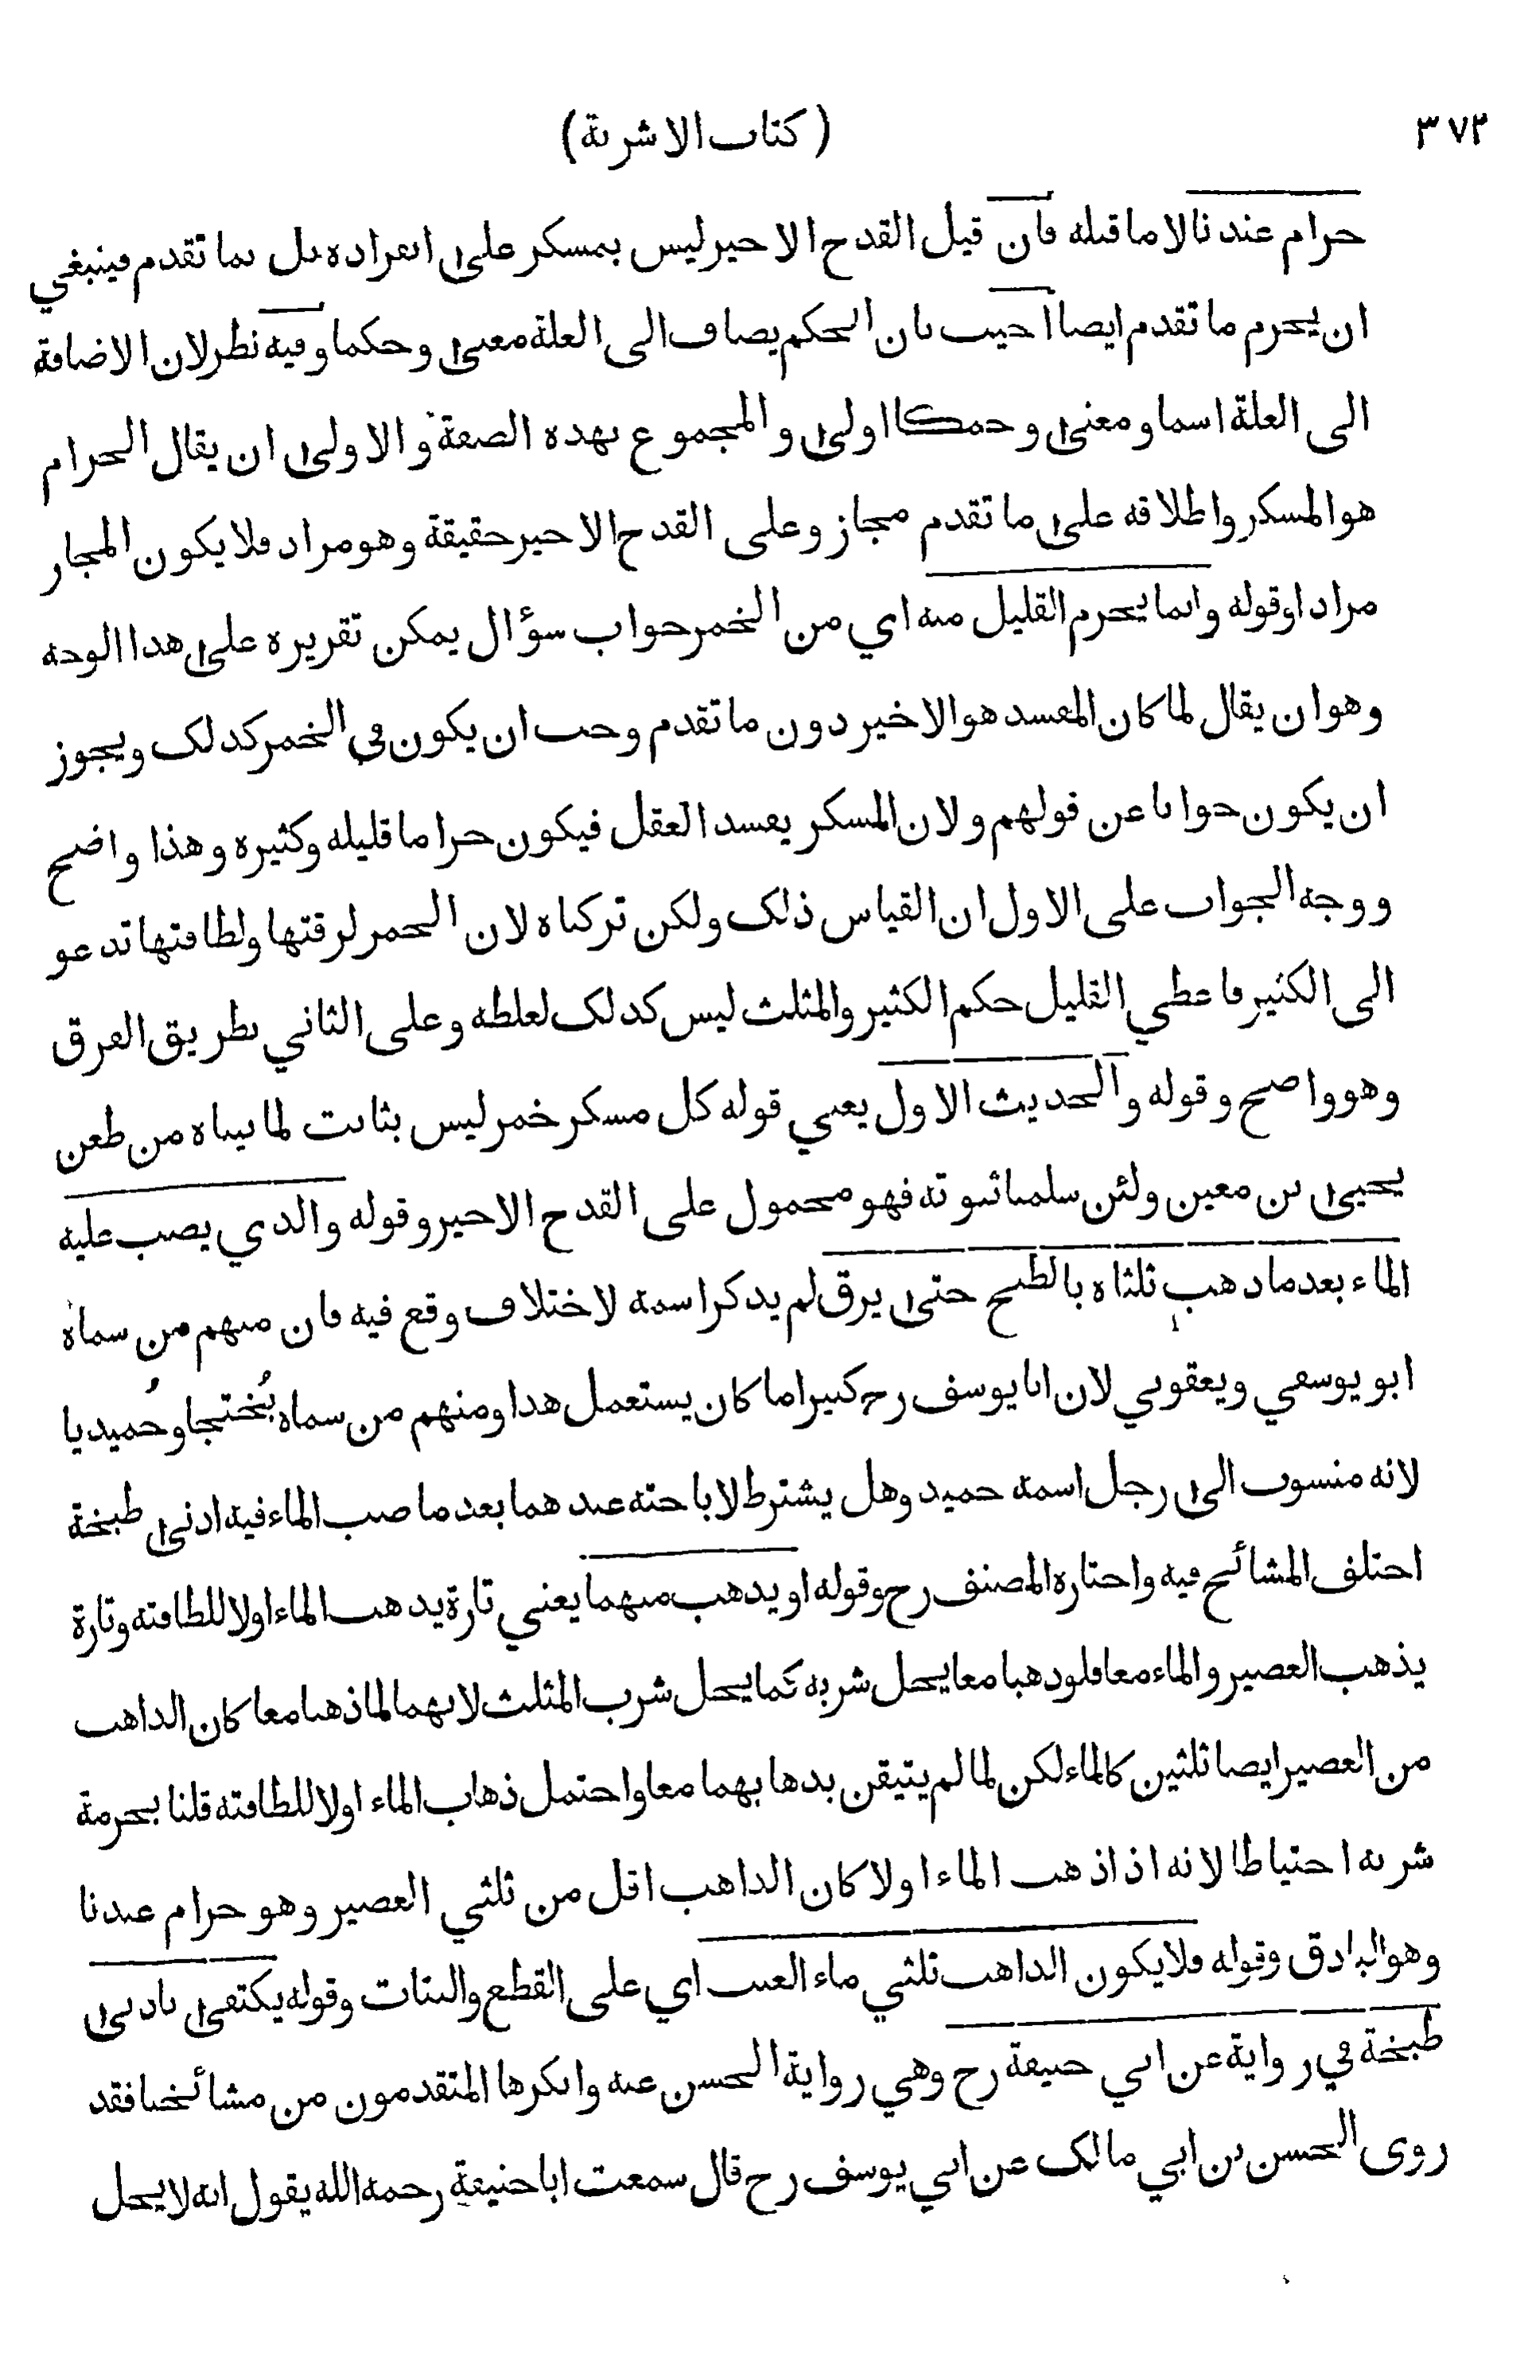 ٣٧٢ (كتاب الاشربة)
حرام عندنا لا ما قبله فان قيل القدح الاخير ليس بمسكر على انفراده بل بما تقدم فينبغي
ان يحرم ما تقدم ايضا اجيب بان الحكم يضاف الى العلة معنى وحكما وفيه نظر لان الاضافة
الى العلة اسما ومعنى وحمكا اولى والمجموع بهذه الصفة والاولى ان يقال الحرام
هو المسكر واطلاقه على ما تقدم مجاز وعلى القدح الاخير حقيقة وهو مراد فلا يكون المجاز
مرادا وقوله وانما يحرم القليل منه اي من الخمر جواب سؤال يمكن تقريره على هذا الوجه
وهو ان يقال لما كان المفسد هو الاخير دون ما تقدم وجب ان يكون في الخمر كذلك ويجوز
ان يكون جوابا عن قولهم ولان المسكر يفسد العقل فيكون حراما قليله وكثيره وهذا واضح
ووجه الجواب على الاول ان القياس ذلك ولكن تركناه لان الخمر لرقتها ولطافتها تدعو
الى الكثير فاعطي القليل حكم الكثير والمثلث ليس كذلك لغلظه وعلى الثاني بطريق الفرق
وهو واضح وقوله والحديث الاول يعني قوله كل مسكر خمر ليس بثابت لما بيناه من طعن
يحيى بن معين ولئن سلمنا ثبوته فهو محمول على القدح الاخير وقوله والذي يصب عليه
الماء بعد ما ذهب ثلثاه بالطبخ حتى يرق لم يذكر اسمه لاختلاف وقع فيه فان منهم من سماه
ابو يوسفي ويعقوبي لان ابا يوسف رح كثيرا ما كان يستعمل هذا ومنهم من سماه بُختجا وحُميديا
لانه منسوب الى رجل اسمه حميد وهل يشترط لاباحته عندهما بعد ما صب الماء فيه ادنى طبخة
اختلف المشائخ فيه واختاره المصنف رح وقوله او يذهب منهما يعني تارة يذهب الماء اولا للطافته وتارة
يذهب العصير والماء معا فلو ذهبا معا يحل شربه كما يحل شرب المثلث لانهما لما ذهبا معا كان الذاهب
من العصير ايضا ثلثين كالماء لكن لما لم يتيقن بذهابهما معا واحتمل ذهاب الماء اولا للطافته قلنا بحرمة
شربه احتياطا لانه اذا ذهب الماء اولا كان الذاهب اقل من ثلثي العصير وهو حرام عندنا
وهو الباذق وقوله فلا يكون الذاهب ثلثي ماء العنب اي على القطع والبتات وقوله يكتفى بادنى
طبخة في رواية عن ابي حنيفة رح وهي رواية الحسن عنه وانكرها المتقدمون من مشائخنا فقد
روى الحسن بن ابي مالك عن ابي يوسف رح قال سمعت ابا حنيفة رحمه الله يقول انه لا يحل